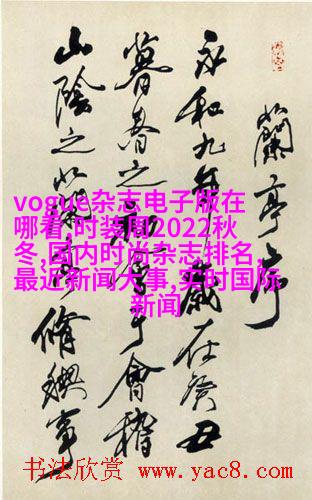 蘭亭序
永和九年歲在癸丑
暮春之初會于會稽
山陰之蘭亭脩禊事
vogue杂志电子版在
哪看,时装周2022秋
冬,国内时尚杂志排名,
最近新闻大事,实时国际
新闻
书法欣赏 www.yac8.com